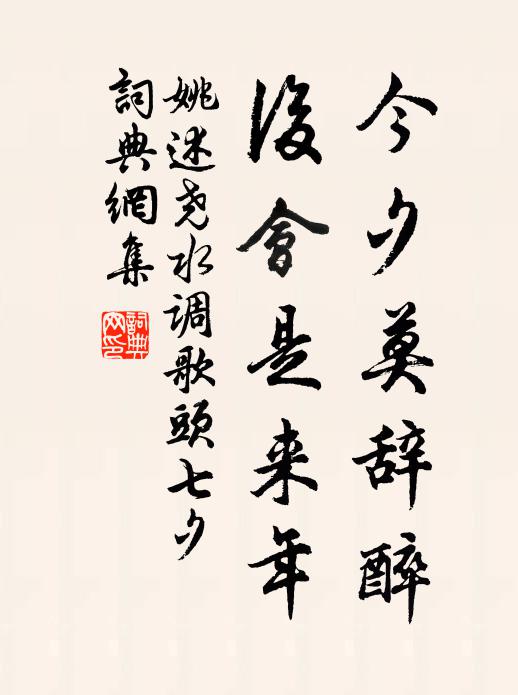 今夕莫辞醉
後會是来年
姚述尧水调歌頭七夕
詞典網集
詞典
网印